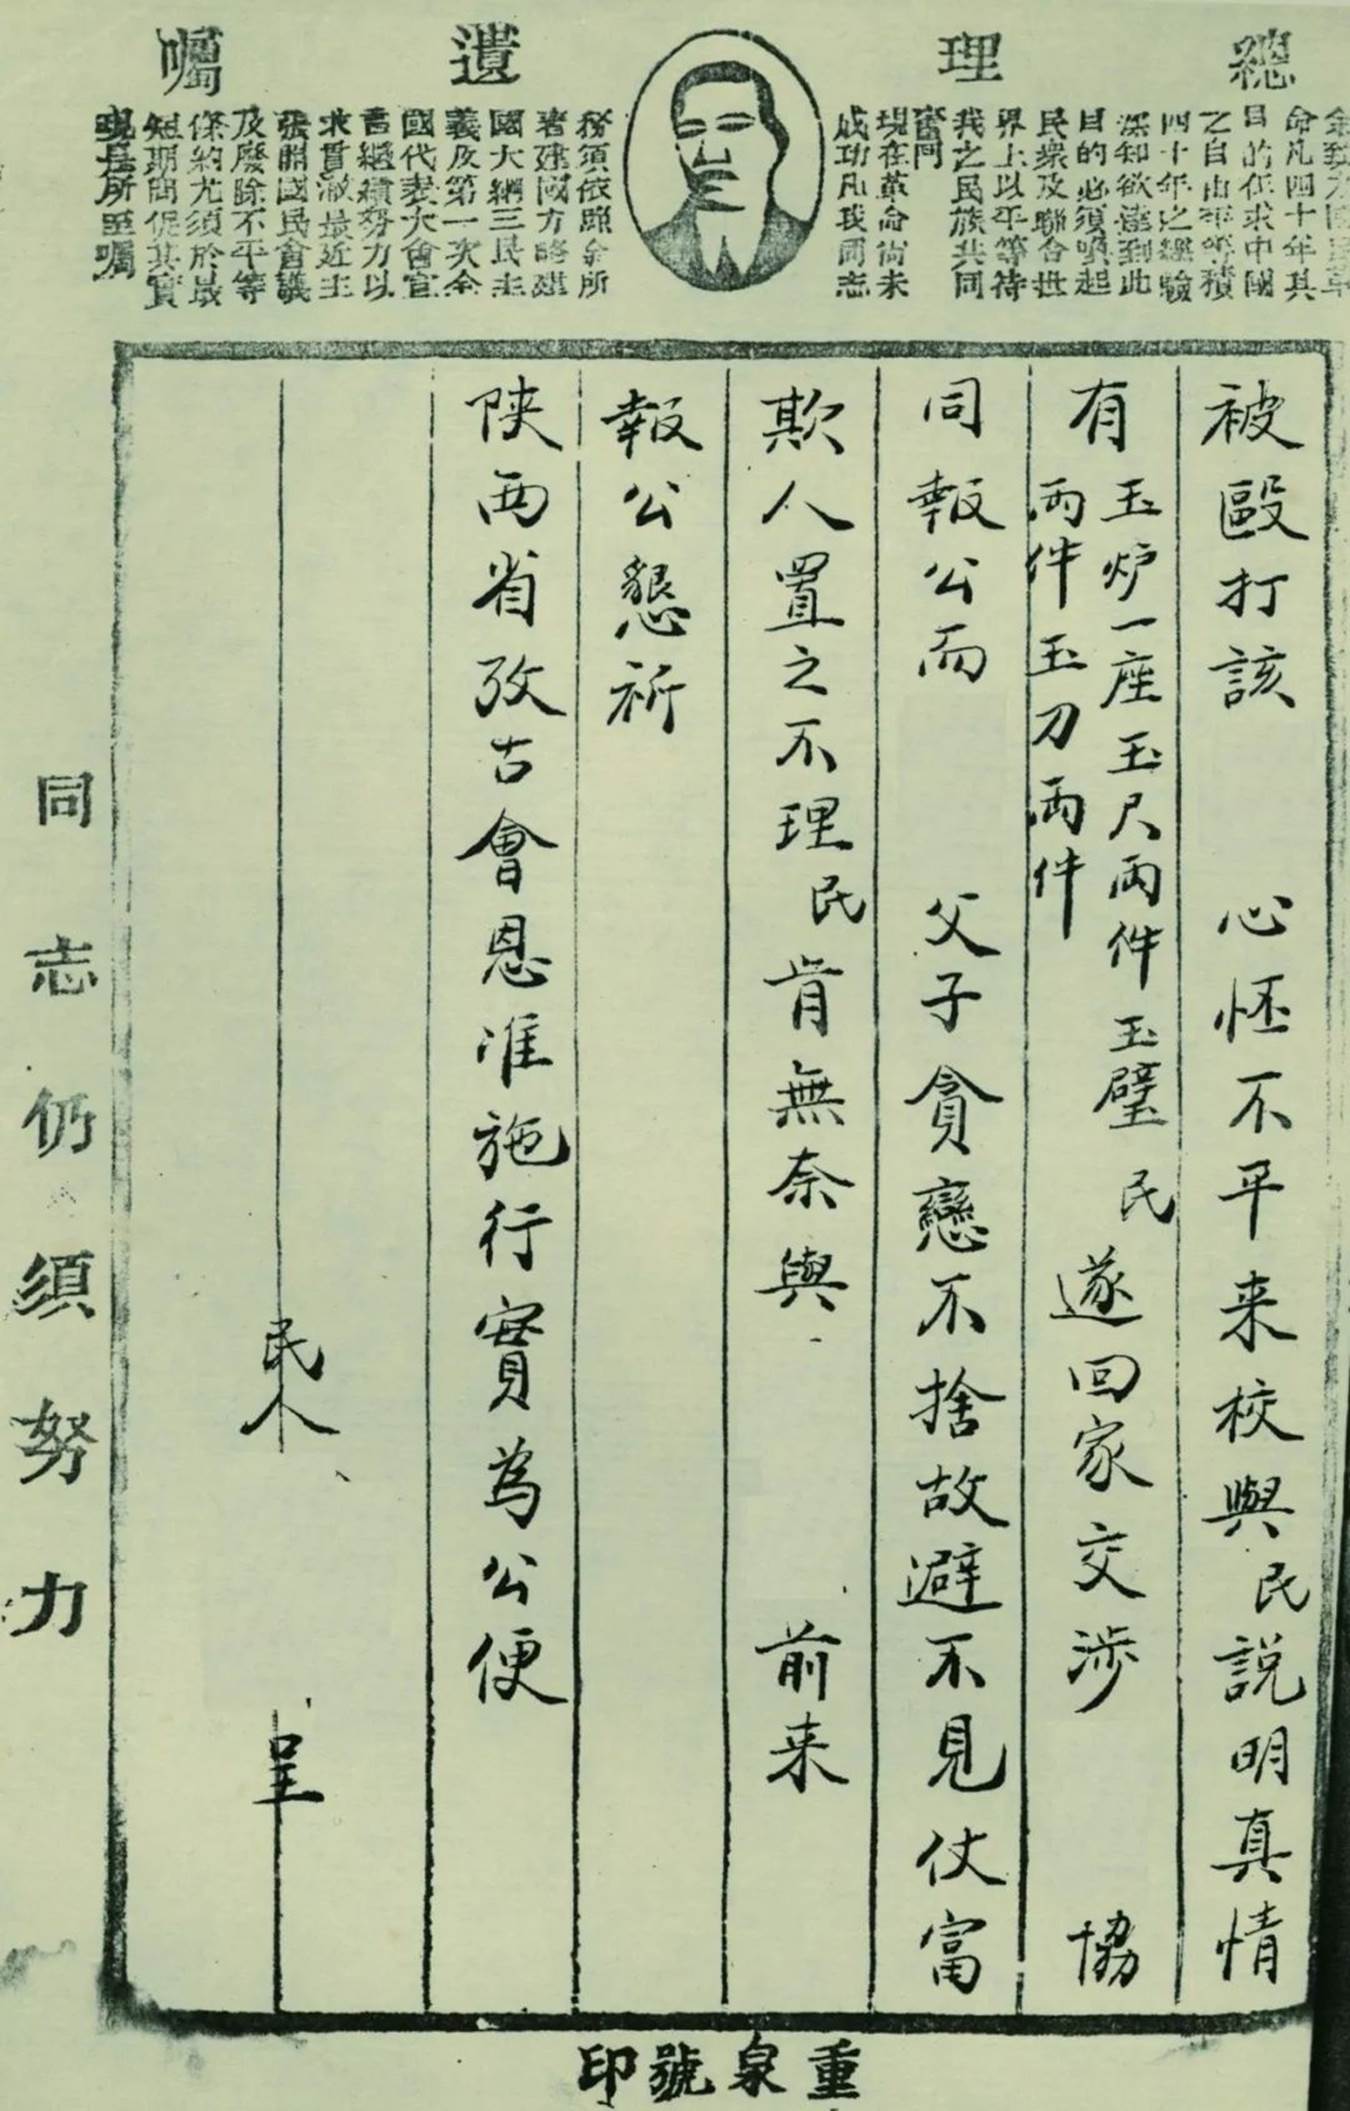 總理遺囑
命凡四十年其
目的在求中國
之自由平等積
四十年之經驗
深知欲達到此
目的必須喚起
民衆及聯合世
界上以平等待
我之民族共同
奮鬥
現在革命尚未
成功凡我同志
務須依照余所
著建國方略建
國大綱三民主
義及第一次全
國代表大會宣
言繼續努力以
求貫澈最近主
張開國民會議
及廢除不平等
條約尤須於最
短期間促其實
現是所至囑
被毆打該 心怪不平来校與民説明真情
有玉炉一座玉尺兩件玉璧
兩件玉刀兩件
民遂回家交涉 協
同報公而 父子貪戀不捨故避不見仗富
欺人置之不理民肯無奈與 前来
報公懇祈
陕西省攷古會恩准施行實為公便
民人 呈
同志仍須努力
重泉號印